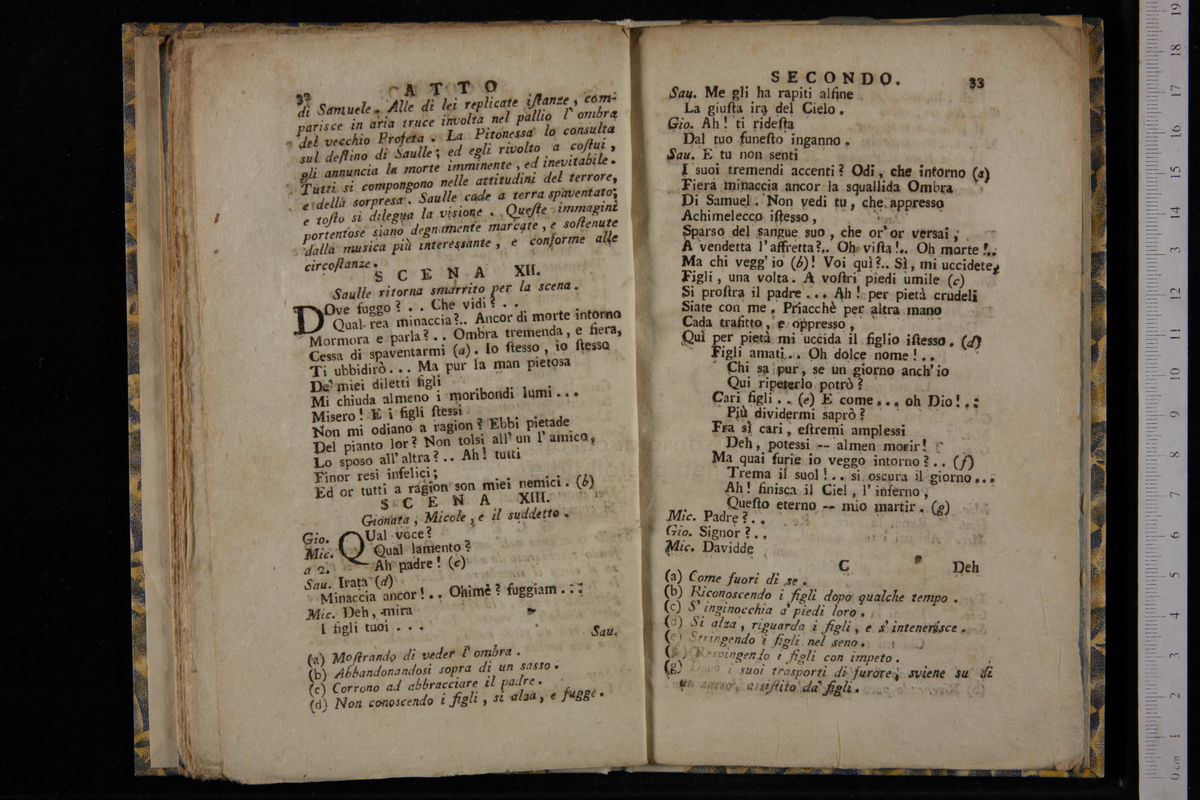 32 ATTO
di Samuele. Alle di lei replicate iſtanze, com-
pariſce in aria truce involta nel pallio l'ombra
del vecchio Profeta. La Pitonessa lo conſulta
sul deſtino di Saulle; ed egli rivolto a coſtui,
gli annuncia la morte imminente, ed inevitabile.
Tutti si compongono nelle attitudini del terrore,
e della sorpresa. Saulle cade a terra spaventato;
e toſto si dilegua la visione. Queſte immagini
portentose siano degnamente marcate, e soſtenute
dalla musica più interessante, e conforme alle
circoſtanze.
SCENA XII.
Saulle ritorna smarrito per la scena.
DOve fuggo? . . Che vidi? . .
Qual rea minaccia?.. Ancor di morte intorno
Mormora e parla?.. Ombra tremenda, e fiera,
Cessa di spaventarmi (a). Io ſtesso, io ſtesso
Ti ubbidirò... Ma pur la man pietosa
De' miei diletti figli
Mi chiuda almeno i moribondi lumi...
Misero! E i figli ſtessi
Non mi odiano a ragion? Ebbi pietade
Del pianto lor? Non tolsi all'un l'amico,
Lo sposo all'altra?.. Ah! tutti
Finor resi infelici;
Ed or tutti a ragion son miei nemici. (b)
SCENA XIII.
Gionata, Micole, e il suddetto.
Gio. QUal voce?
Mic. Qual lamento?
a 2. Ah padre! (c)
Sau. Irata (d)
Minaccia ancor!.. Ohimè? fuggiam. . : :
Mic. Deh, mira
I figli tuoi . . .
Sau.
(a) Moſtrando di veder l'ombra.
(b) Abbandonandosi sopra di un sasso.
(c) Corrono ad abbracciare il padre.
(d) Non conoscendo i figli, si alza, e fugge.
SECONDO. 33
Sau. Me gli ha rapiti alfine
La giuſta ira del Cielo.
Gio. Ah! ti rideſta
Dal tuo funeſto inganno.
Sau. E tu non senti
I suoi tremendi accenti? Odi, che intorno (a)
Fiera minaccia ancor la squallida Ombra
Di Samuel. Non vedi tu, che appresso
Achimelecco iſtesso,
Sparso del sangue suo, che or'or versai,
A vendetta l'affretta?.. Oh viſta!.. Oh morte!..
Ma chi vegg'io (b)! Voi quì?.. Sì, mi uccidete,
Figli, una volta. A voſtri piedi umile (c)
Si proſtra il padre... Ah! per pietà crudeli
Siate con me. Priacchè per altra mano
Cada trafitto, e oppresso,
Quì per pietà mi uccida il figlio iſtesso. (d)
Figli amati.. Oh dolce nome!..
Chi sa pur, se un giorno anch'io
Qui ripeterlo potrò?
Cari figli.. (e) E come... oh Dio!.:
Più dividermi saprò?
Fra sì cari, eſtremi amplessi
Deh, potessi -- almen morir!
Ma quai furie io veggo intorno?.. (f)
Trema il suol!.. si oscura il giorno...
Ah! finisca il Ciel, l'inferno,
Queſto eterno -- mio martir. (g)
Mic. Padre?..
Gio. Signor?..
Mic. Davidde
C Deh
(a) Come fuori di se.
(b) Riconoscendo i figli dopo qualche tempo.
(c) S'inginocchia a' piedi loro.
(d) Si alza, riguarda i figli, e s'intenerisce.
(e) Stringendo i figli nel seno.
(f) Respingendo i figli con impeto.
(g) Dopo i suoi trasporti di furore, sviene su di
un sasso, assiſtito da' figli.